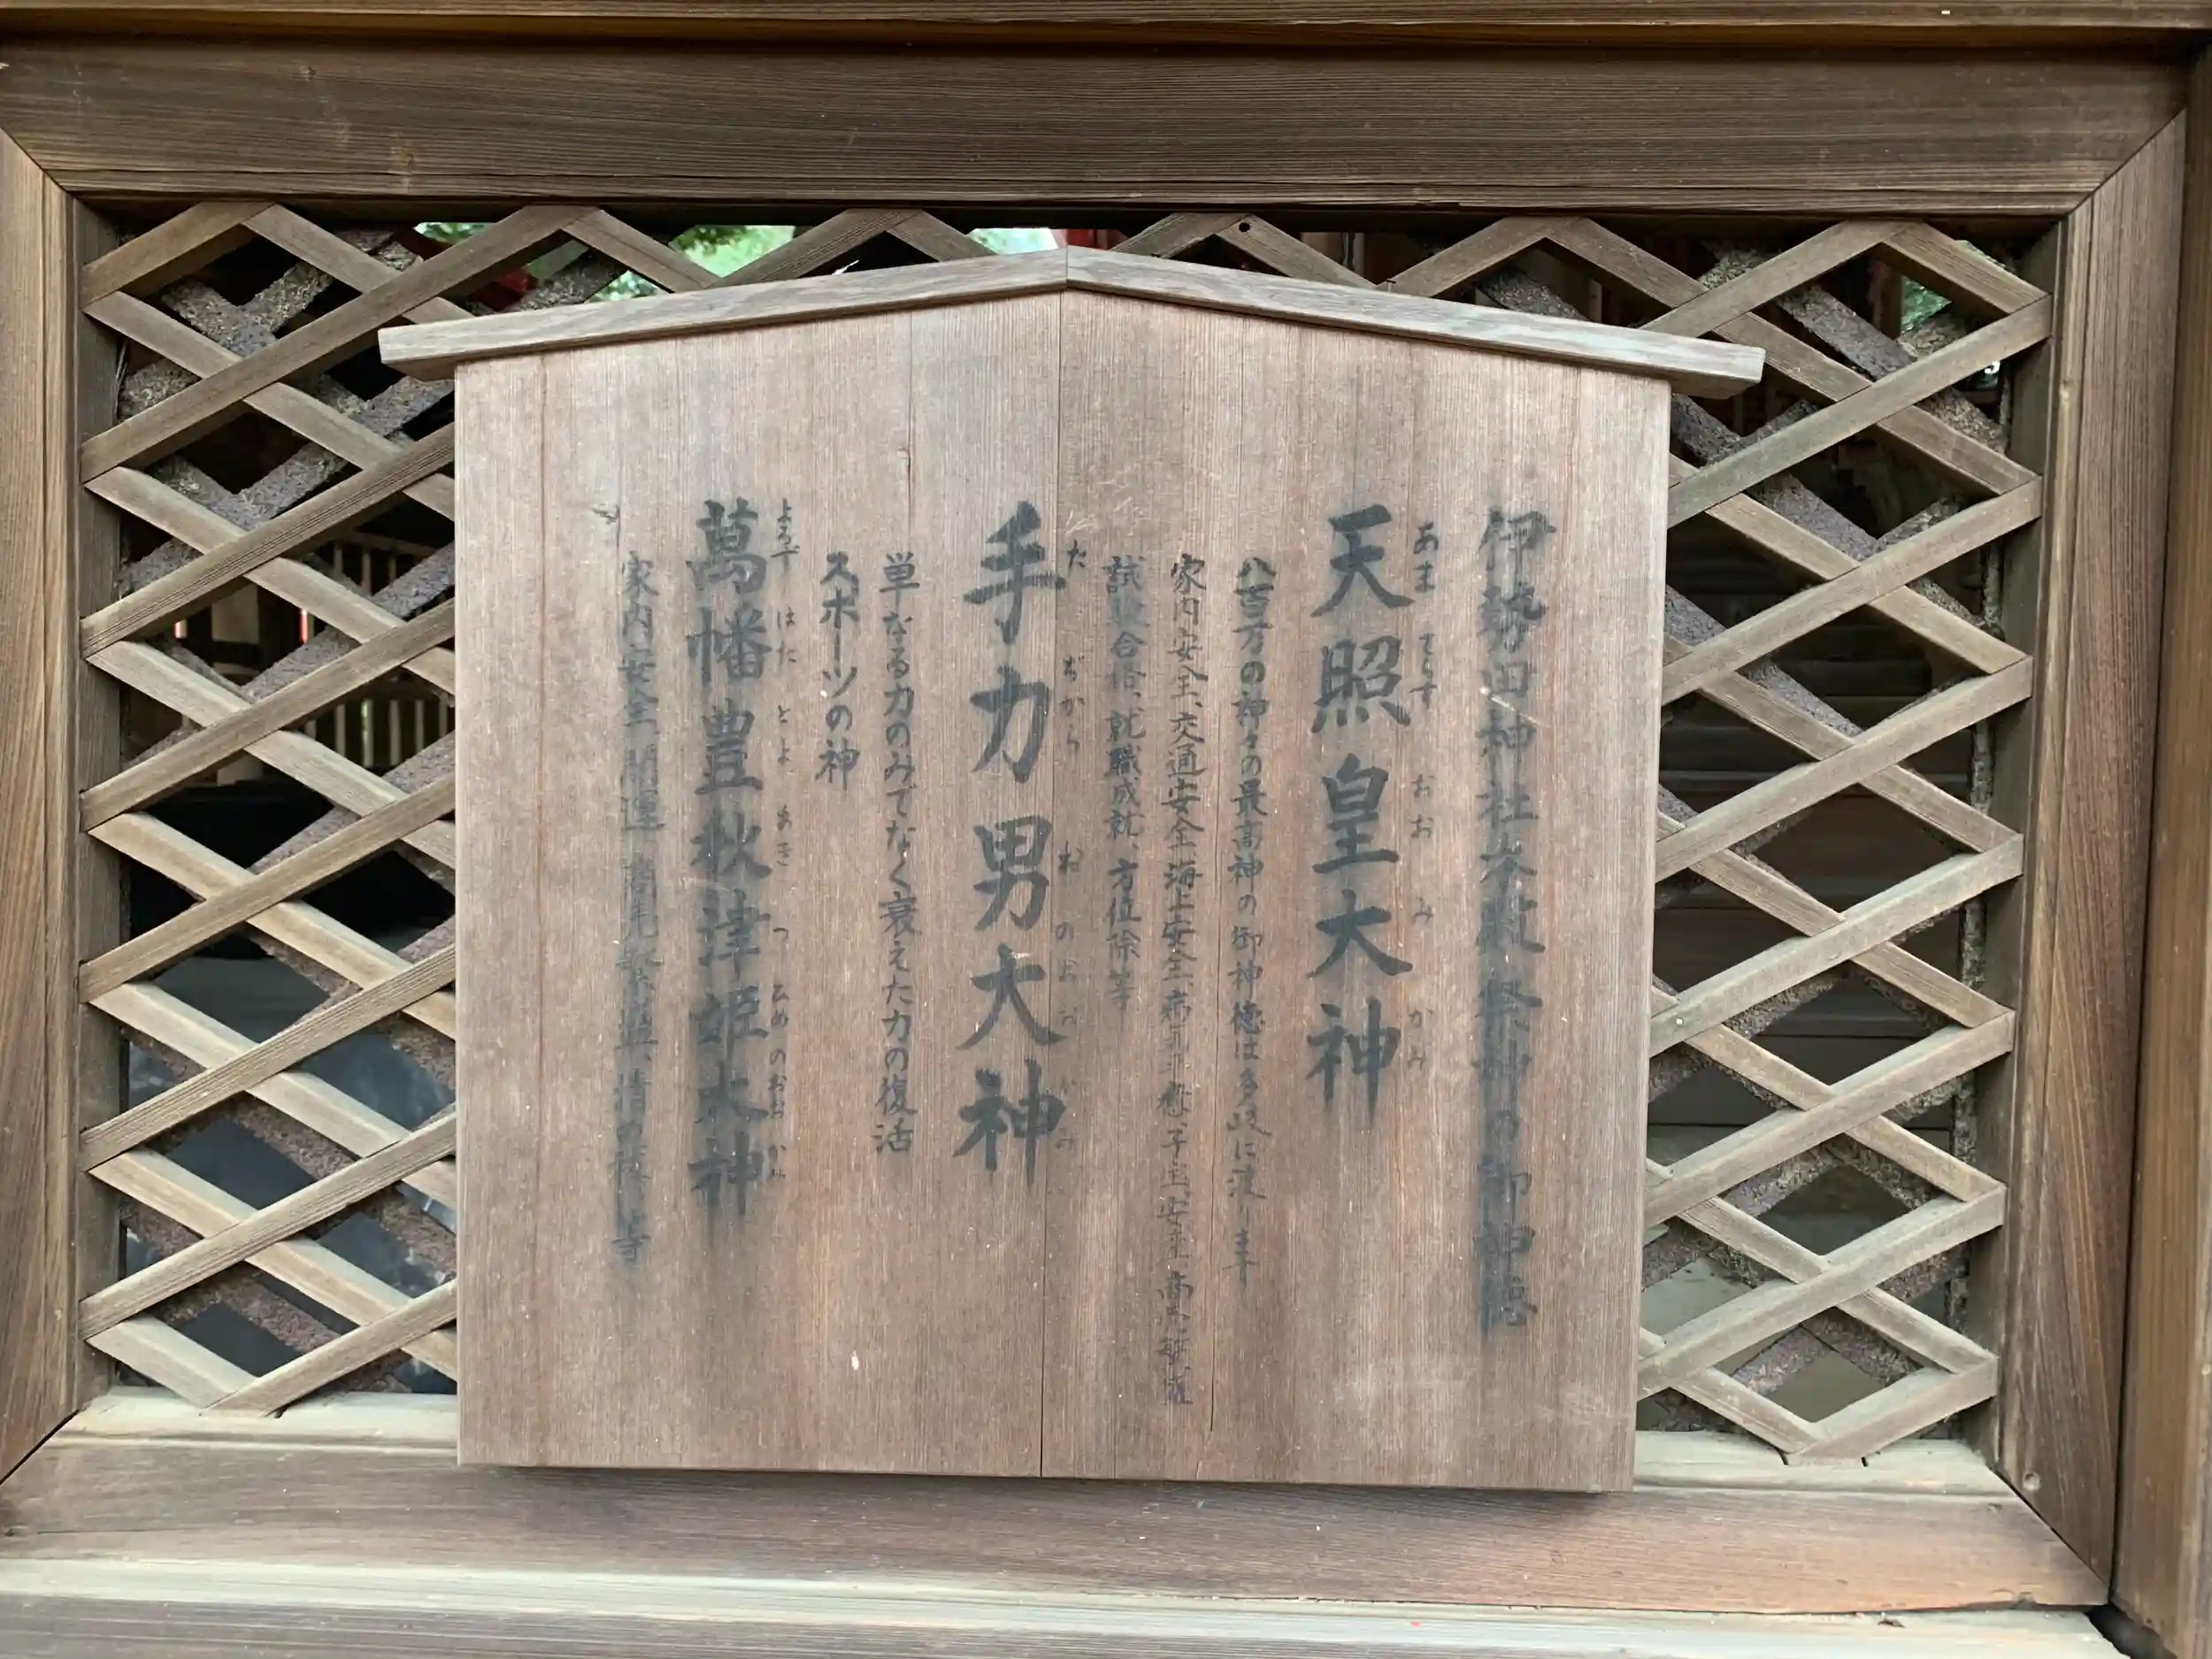 伊勢田神社本殿祭神の御神徳
あま てらす おお み かみ
天照皇大神
八百万の神々の最高神の御神徳は多岐に渡ります
家内安全、交通安全、海上安全、病気平癒、子宝、安産、商売繁盛
試験合格、就職成就、方位除等
た ぢから お のおおかみ
手力男大神
単なる力のみでなく衰えた力の復活
スポーツの神
よろず はた とよ あき つ ひめ のおおかみ
萬幡豊秋津姫大神
家内安全、開運、商売繁盛、情の 等